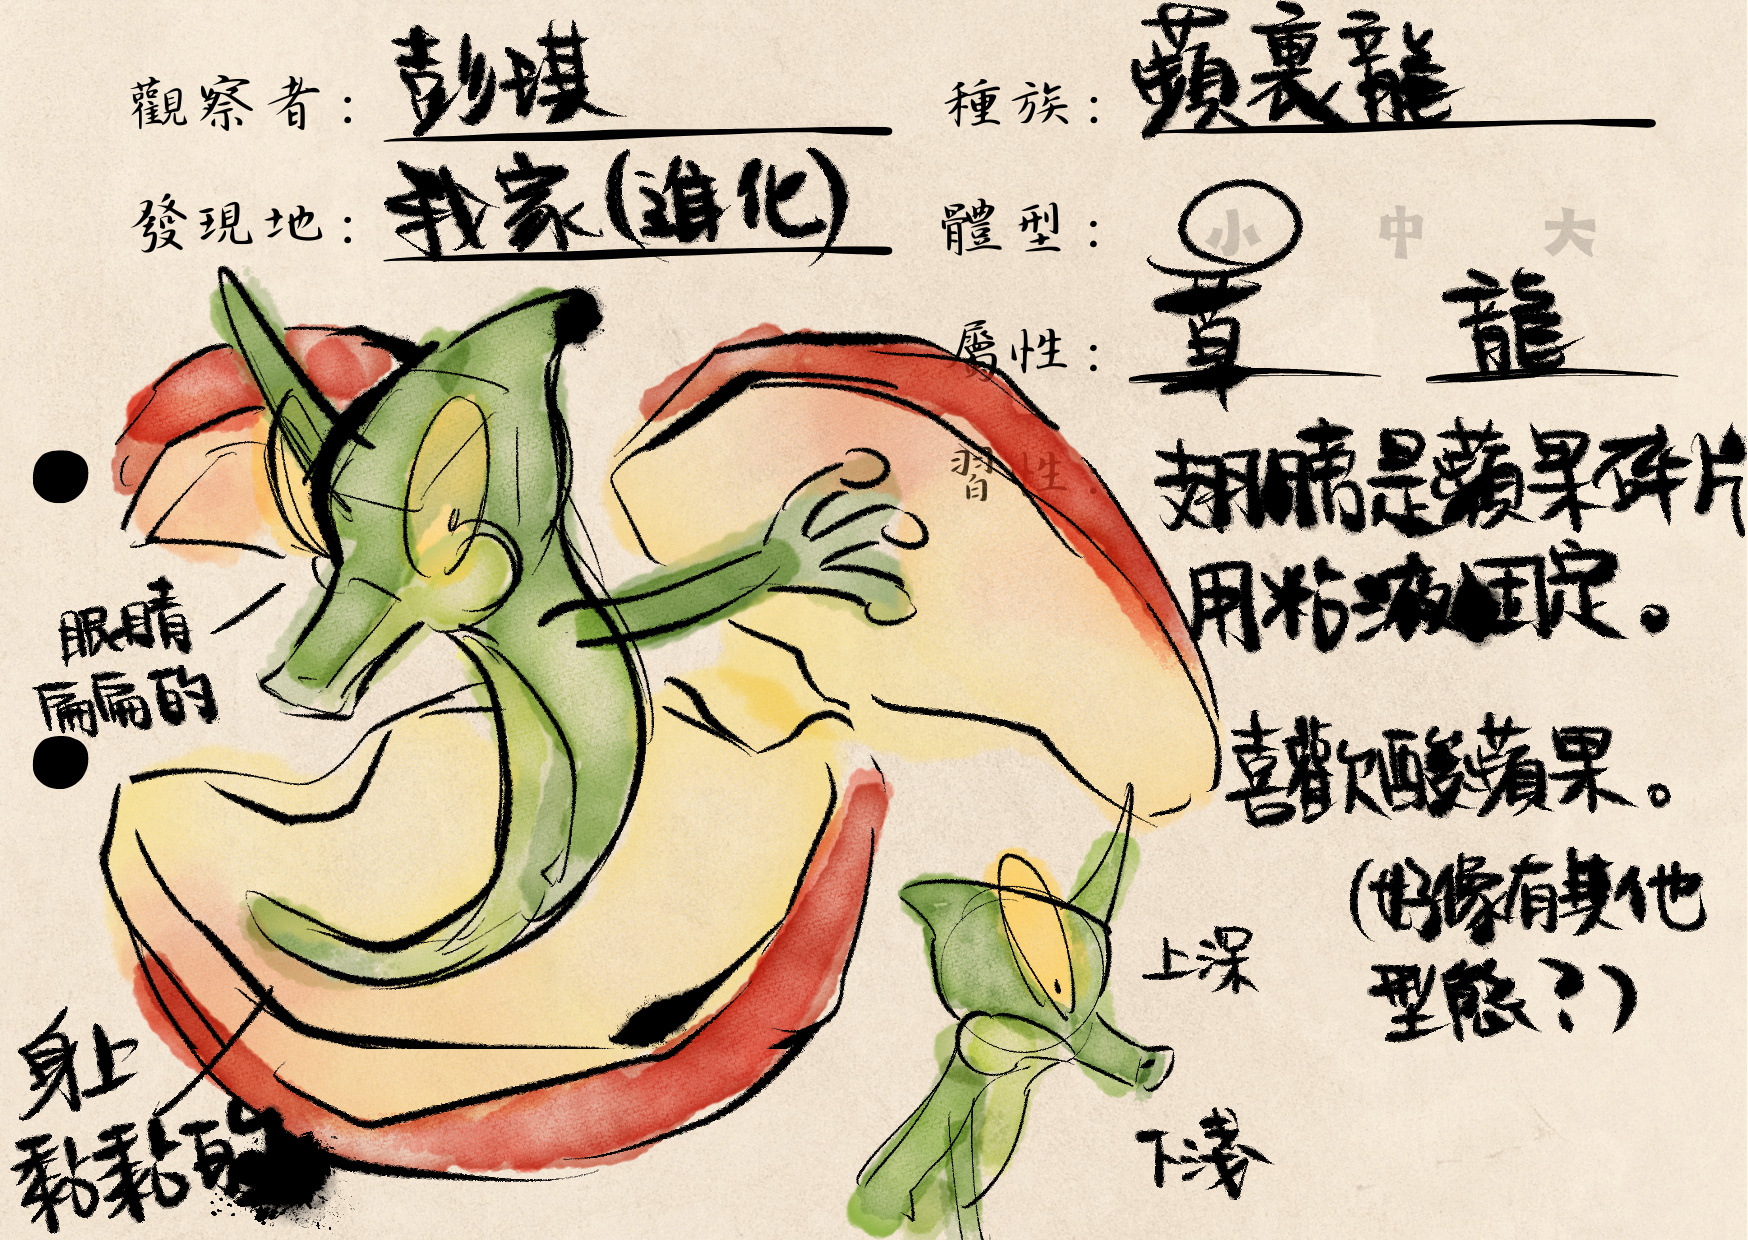 觀察者：彭琪
種族：蘋裹龍
發現地：我家(進化)
體型：小 中 大
屬性：草 龍
習性：
翅膀是蘋果碎片
用粘液固定。
喜歡酸蘋果。
(好像有其他
型態？)
眼睛
扁扁的
身上
黏黏的
上深
下淺